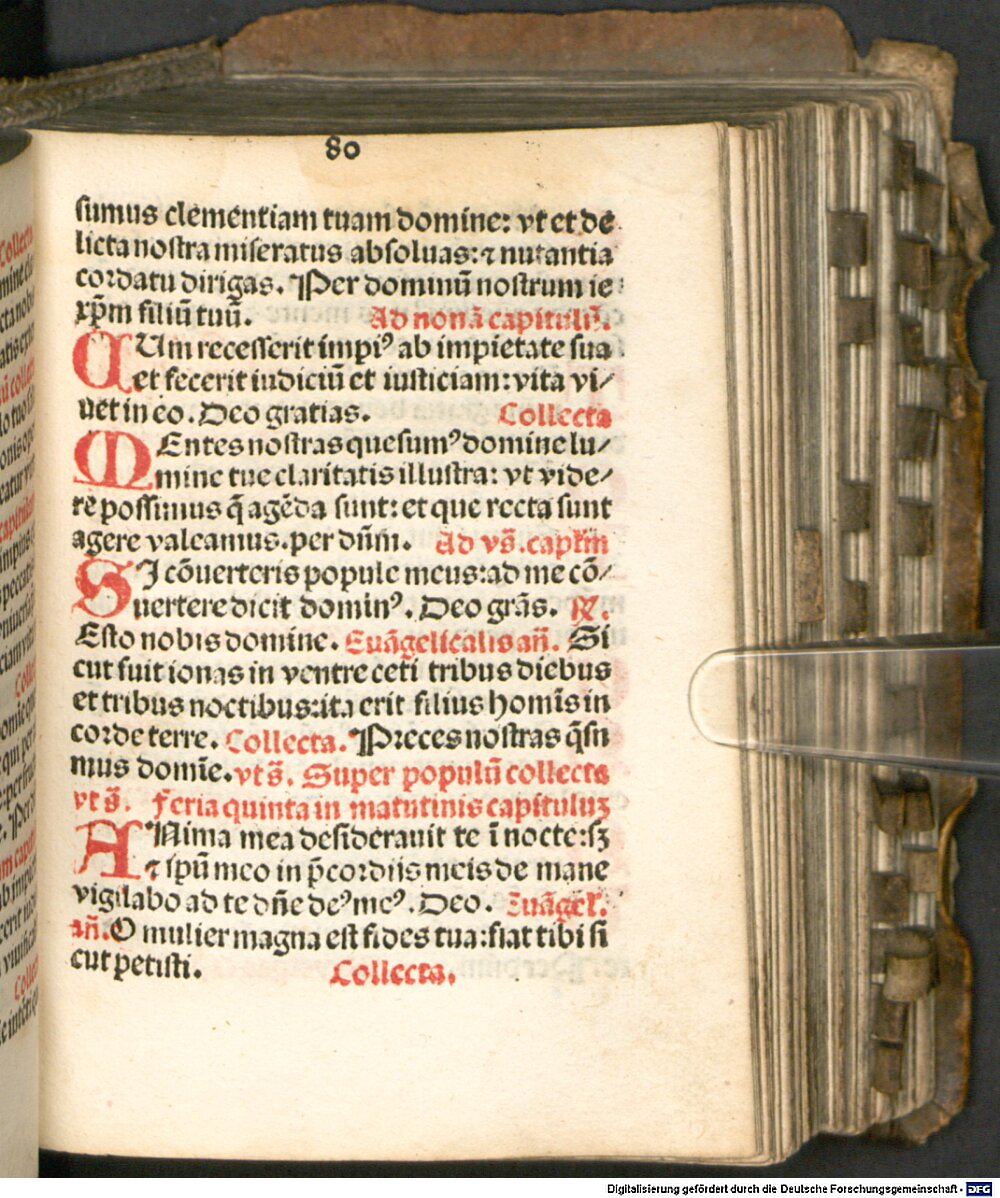 80
sumus clementiam tuam domine: vt et de
licta nostra miseratus absoluas: ⁊ nutantia
cordatu dirigas. Per dominū nostrum ie
xp̄m filiū tuū. Ad nonā capitulū.
CUm recesserit impiꝰ ab impietate sua
et fecerit iudiciū et iusticiam: vita vi/
uet in eo. Deo gratias. Collecta
MEntes nostras quesumꝰ domine lu/
mine tue claritatis illustra: vt vide/
re possimus q̄ agēda sunt: et que recta sunt
agere valeamus. per dn̄m. Ad vs̄. capl̄m
SI cōuerteris popule meus: ad me cō/
uertere dicit dominꝰ. Deo grās. R̷.
Esto nobis domine. Euāgelicalis an̄. Si
cut fuit ionas in ventre ceti tribus diebus
et tribus noctibus: ita erit filius homīs in
corde terre. Collecta. Preces nostras q̄su
mus domīe. vt s̄. Super populū collecta
vt s̄. Feria quinta in matutinis capituluꝫ
ANima mea desiderauit te ī nocte: sꝫ
⁊ spū meo in p̄cordiis meis de mane
vigilabo ad te dn̄e deꝰ meꝰ. Deo. Euāgel̄.
an̄. O mulier magna est fides tua: fiat tibi si
cut petisti. Collecta.
Digitalisierung gefördert durch die Deutsche Forschungsgemeinschaft - DFG